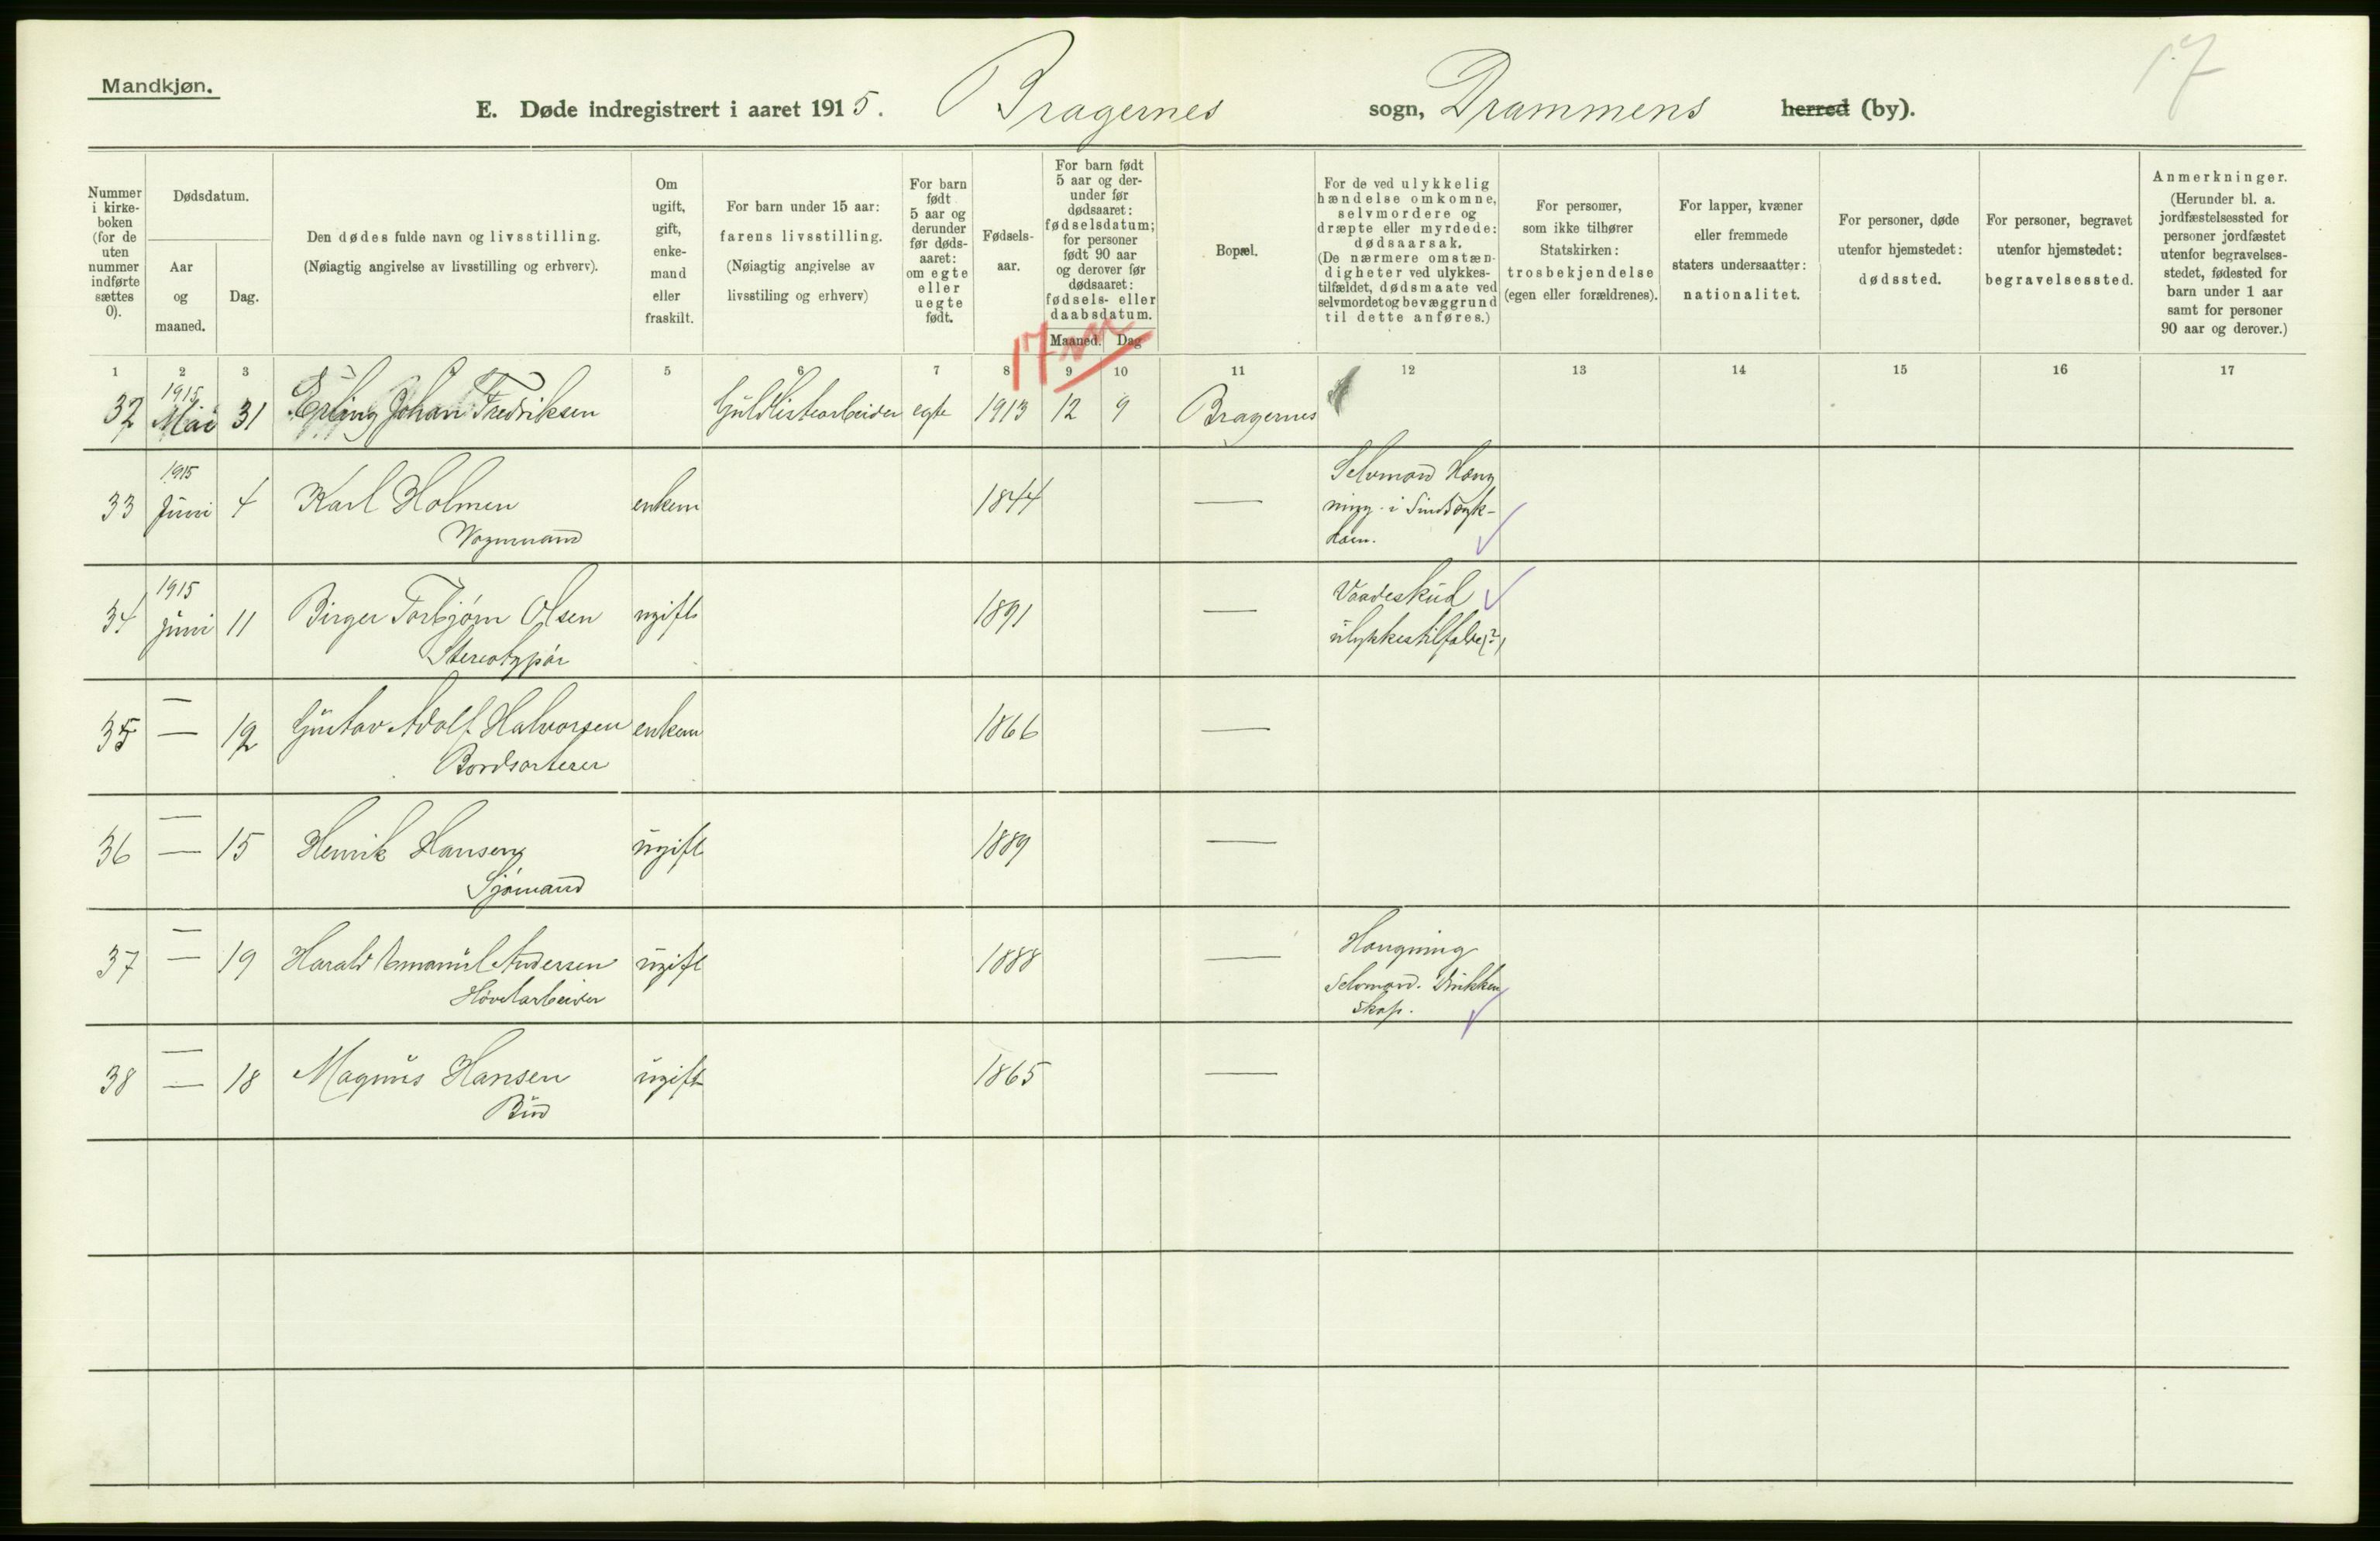 Mandkjøn.
17
E. Døde indregistrert i aaret 1915. Bragernes sogn, Drammens herred (by).
Nummer i kirke-boken (for de uten nummer indførte sættes 0).
Dødsdatum.
Aar og maaned.
Dag.
Den dødes fulde navn og livsstilling.
(Nøiagtig angivelse av livsstilling og erhverv).
Om ugift, gift, enke-mand eller fraskilt.
For barn under 15 aar: farens livsstilling.
(Nøiagtig angivelse av livsstiling og erhverv)
For barn født 5 aar og derunder før døds-aaret: om egte eller uegte født.
Fødsels-aar.
For barn født 5 aar og der-under før dødsaaret: fødselsdatum; for personer født 90 aar og derover før dødsaaret: fødsels- eller daabsdatum.
Maaned. Dag
Bopæl.
For de ved ulykkelig hændelse omkomne, selvmordere og dræpte eller myrdede: dødsaarsak.
(De nærmere omstæn-digheter ved ulykkes-tilfældet, dødsmaate ved selvmordet og bevæggrund til dette anføres.)
For personer, som ikke tilhører Statskirken: trosbekjendelse (egen eller forældrenes).
For lapper, kvæner eller fremmede staters undersaatter: nationalitet.
For personer, døde utenfor hjemstedet: dødssted.
For personer, begravet utenfor hjemstedet: begravelsessted.
Anmerkninger.
(Herunder bl. a. jordfæstelsessted for personer jordfæstet utenfor begravelses-stedet, fødested for barn under 1 aar samt for personer 90 aar og derover.)
17
1 2 3 5 6 7 8 9 10 11 12 13 14 15 16 17
1915
32 Mai 31 Erling Johan Fredriksen Guldlistearbeider egte 1913 12 9 Bragernes
1915
33 Juni 4 Karl Holmen enkem 1844 — Selvmord Hæng
ning i Sindssyk-
dom.
Vognmand
1915
34 Juni 11 Birger Torbjørn Olsen ugift 1891 — Vaadeskud
ulykkestilfælde(?)
Stereotypør
—
35 — 12 Gustav Adolf Halvorsen enkem 1866 —
Bordsorterer
—
36 — 15 Henrik Hansen ugift 1889 —
Sjømand
—
37 — 19 Harald Emanuel Andersen ugift 1888 — Hængning
Selvmord. Drikken
skap.
Høvelarbeider
—
38 — 18 Magnus Hansen ugift 1865 —
Bud